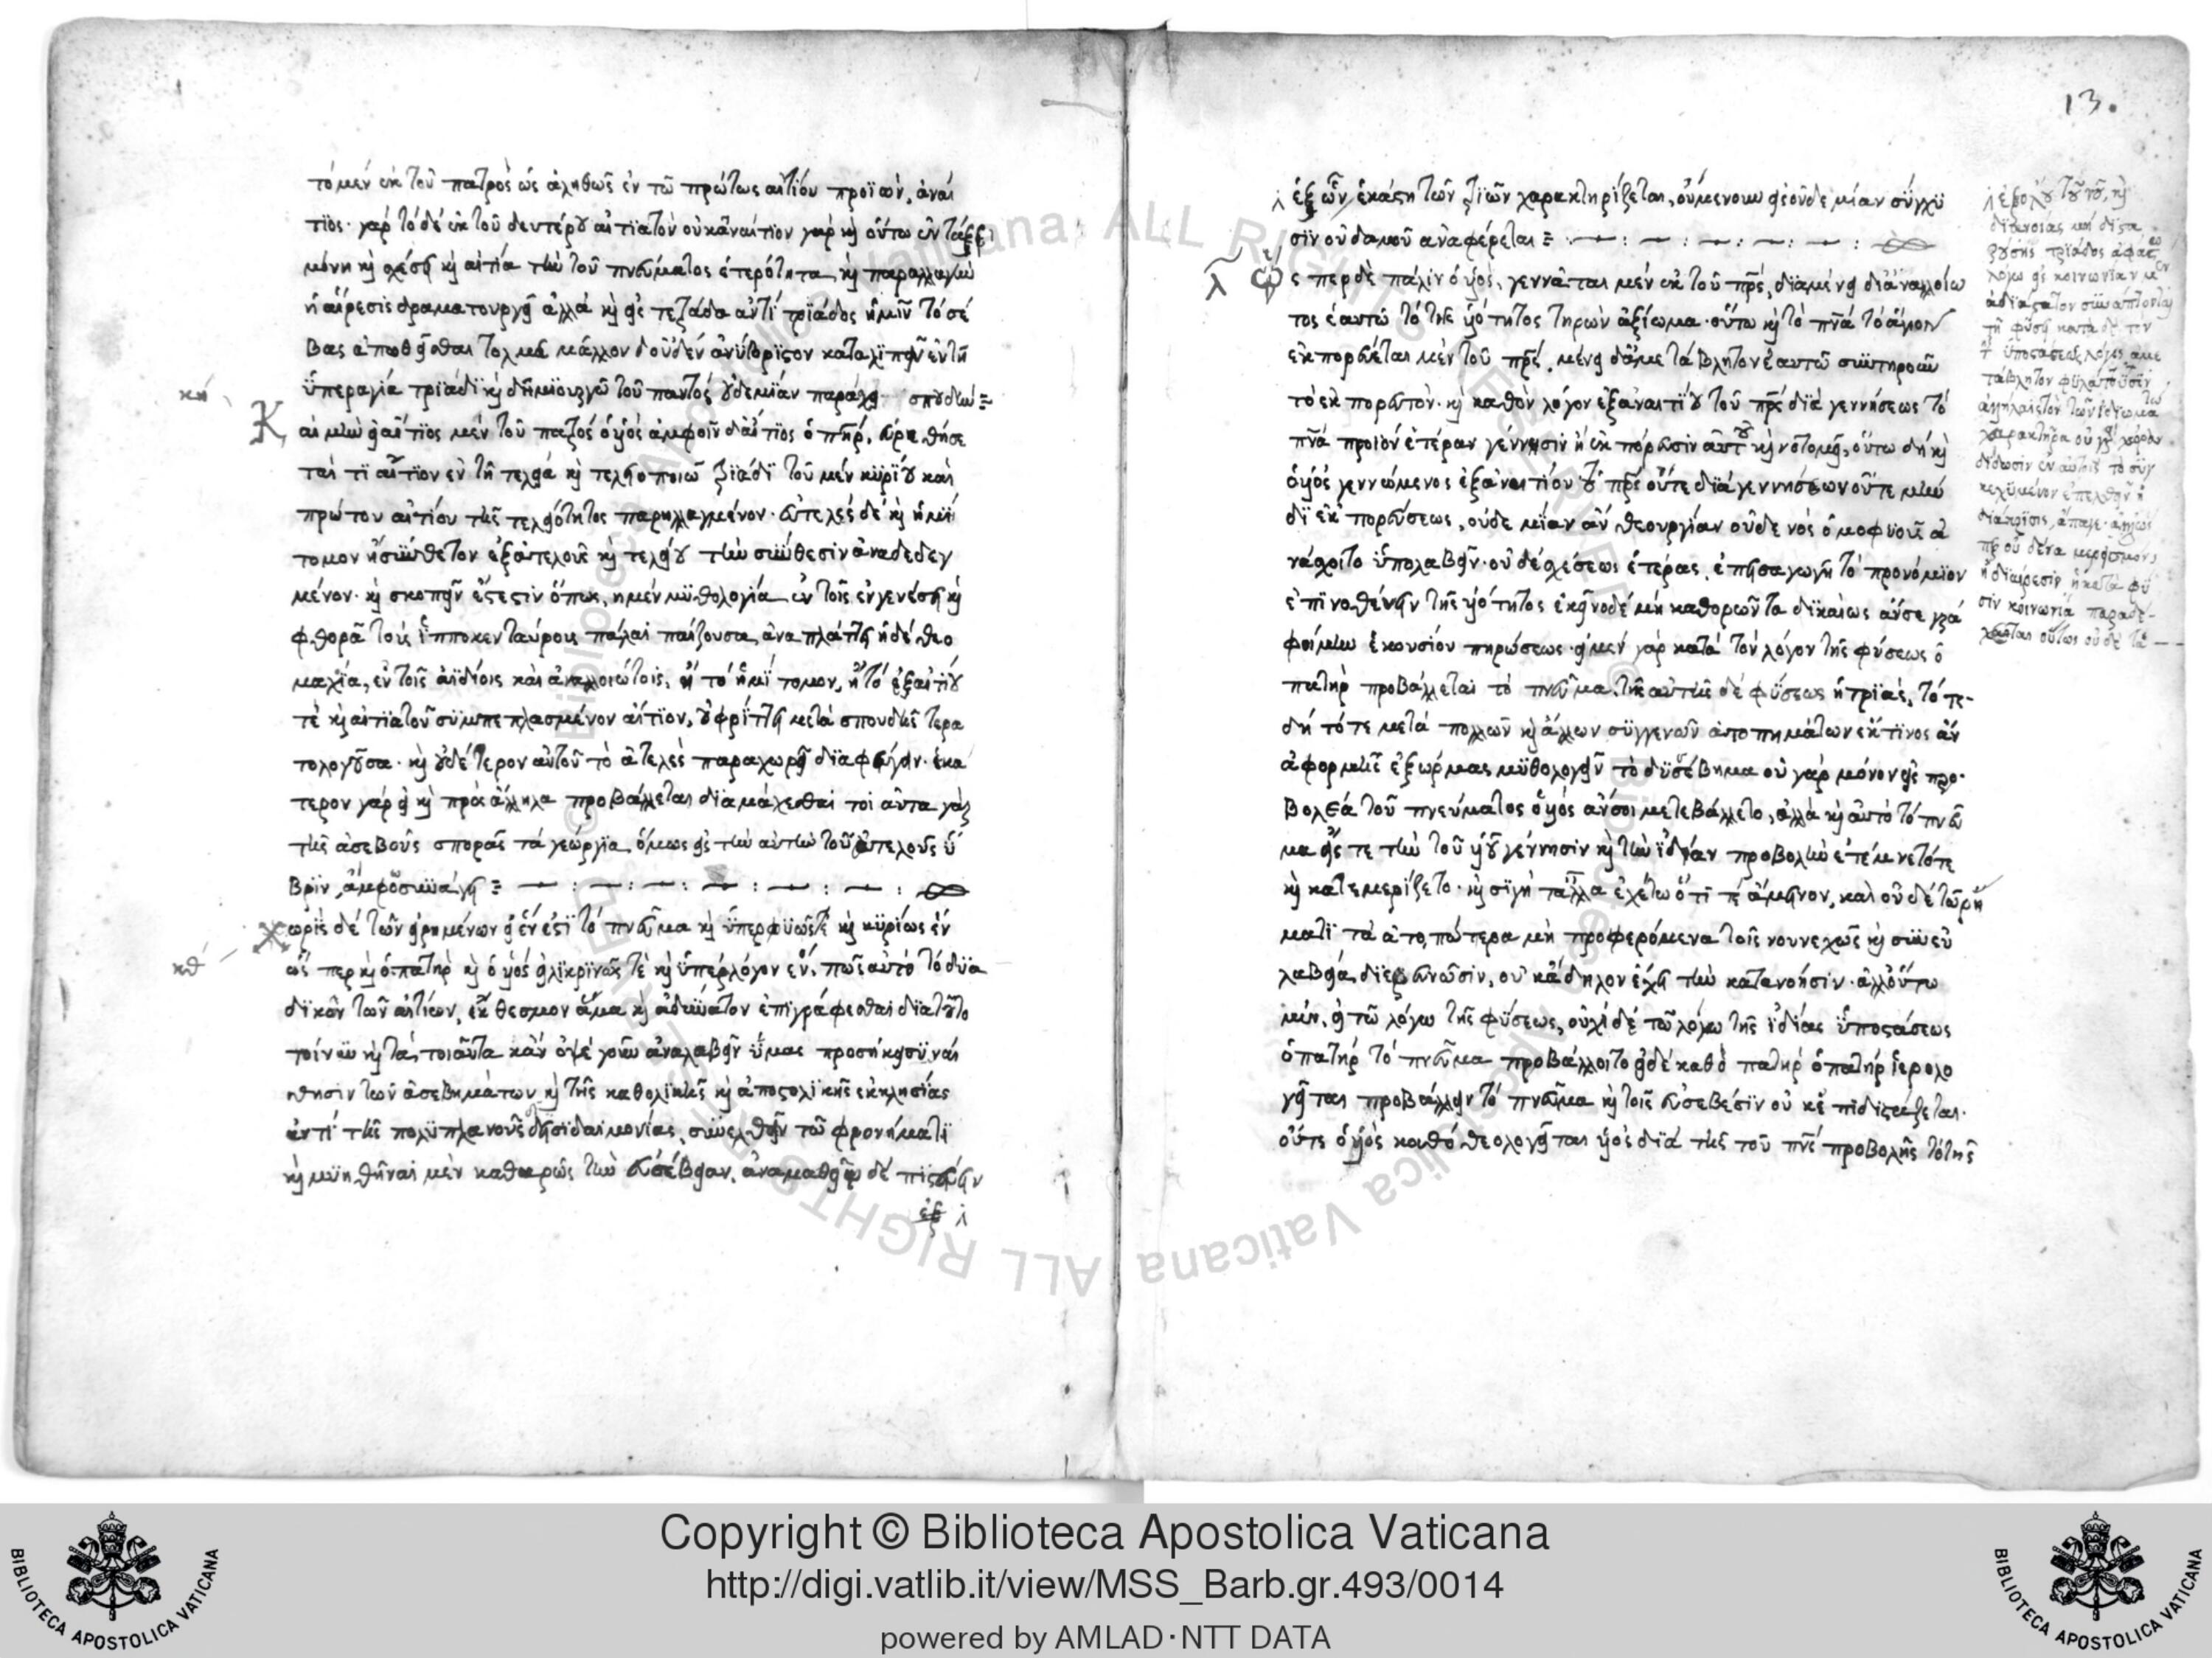 τὸ μὲν ἐκ τοῦ πατρὸς ὡς ἀληθῶς ἐν τῶ πρώτως αἰτίου προϊων, ἀναί
τιος· γὰρ τὸ δὲ ἐκ τοῦ δευτέρου αἰτιατὸν οὐκ ἀναίτιον γὰρ καὶ οὕτω ἐν τάξει
μόνη καὶ σχέσει καὶ αἰτία τὴν τοῦ πνεύματος ἑτερότητα καὶ παραλλαγὴν
ἡ αἵρεσις δραματουργεῖ ἀλλὰ καὶ εἰς τετράδα ἀντὶ τριάδος ἡμῖν τὸ σέ
βας ἀπωθεῖσθαι τολμᾶ μᾶλλον δ' οὐδὲν ἀνύβριστον καταλιπεῖν ἐν τῆ
ὑπεραγία τριάδι καὶ δημιουργῶ τοῦ παντὸς οὐδεμίαν παρέχει σπουδὴν
κη
Και μὴν εἰ αἴτιος μὲν τοῦ πατρὸς ὁ υἱὸς ἀμφοῖν δ' αἴτιος ὁ πατήρ, εὑρεθήσε
ται τι αἴτιον ἐν τῆ τελεία καὶ τελειοποιῶ τριάδι τοῦ μὲν κυρίου καὶ
πρώτου αἰτίου τῆς τελειότητος παρηλλαγμένον· ἀτελὲς δὲ καὶ ἡμί
τομον ἢ σύνθετον ἐξ ἀτελοῦς καὶ τελείου τὴν σύνθεσιν ἀναδεδεγ
μένον· καὶ σκοπεῖν ἔξεστιν ὅπως, ἡ μὲν μυθολογία ἐν τοῖς ἐν γενέσει καὶ
φθορᾶ τοὺς ἱπποκενταύρους πάλαι παίζουσα, ἀναπλάττει ἡ δὲ θεο
μαχία, ἐν τοῖς ἀϊδίοις καὶ ἀναλλοιώτοις, ἢ τὸ ἡμίτομον, ἢ τὸ ἐξ αἰτίου
τὲ καὶ αἰτιατοῦ συμπεπλασμένον αἴτιον, οὐ φρίττει μετὰ σπουδῆς τερα
τολογοῦσα· καὶ οὐδέτερον αὐτοῦ τὸ ἀτελὲς παραχωρεῖ διαφυγεῖν· ἑκά
τερον γὰρ εἰ καὶ πρὸς ἄλληλα προβάλλεται διαμάχεσθαί τοιαῦτα γὰρ
τῆς ἀσεβοῦς σπορᾶς τὰ γεώργια, ὅμως εἰς τὴν αὐτὴν τοῦ ἀτελοῦς ὕ
βριν, ἄμφω συνάγει
Χωρὶς δὲ τῶν εἰρημένων εἰ ἕν ἐστι τὸ πνεῦμα καὶ ὑπερφυῶς τε καὶ κυρίως ἓν
κθ
ὥσπερ καὶ ὁ πατὴρ καὶ ὁ υἱὸς εἰλικρινῶς τὲ καὶ ὑπὲρ λόγον ἕν, πῶς αὐτὸ τὸ δυα
δικὸν τῶν αἰτίων, ἔκθεσμον ἅμα καὶ ἀδύνατον ἐπιγράφεσθαι διὰ τοῦτο
τοίνυν καὶ τὰ τοιαῦτα κἂν ὀψὲ γοῦν ἀναλαβεῖν ὑμᾶς προσήκει συναί
σθησιν τῶν ἀσεβημάτων καὶ τῆς καθολικῆς καὶ ἀποστολικῆς ἐκκλησίας
ἀντὶ τῆς πολυπλανοῦς δεισιδαιμονίας, συνελθεῖν τῶ φρονήματι
καὶ μυηθῆναι μὲν καθαρῶς τὴν εὐσέβειαν, ἀναμαθεῖν δὲ πιστεύειν
13.
ἐξ ὧν, ἑκάστη τῶν τριῶν χαρακτηρίζεται, οὐμενουν εἰς οὐδεμίαν σύγχυ
σιν οὐδαμοῦ ἀναφέρεται
λ
Ὥσπερ δὲ πάλιν ὁ υἱὸς, γεννᾶται μὲν ἐκ τοῦ πρς, διαμένει δ' ἀναλλοίω
τος ἑαυτῶ τὸ τῆς υἱότητος τηρῶν ἀξίωμα· οὕτω καὶ τὸ πνα τὸ ἅγιον
ἐκπορεύεται μὲν τοῦ πρς, μένει δ' ἀμετάβλητον ἑαυτῶ συντηροῦν
τὸ ἐκπορευτόν· καὶ καθ' ὃν λόγον ἐξ ἀναιτίου τοῦ πρς διὰ γεννήσεως τὸ
πνα προϊὸν ἑτέραν γέννησιν ἢ ἐκπόρευσιν αὐτοῦ καινοτομεῖ, οὕτω δὴ καὶ
ὁ υἱὸς γεννώμενος ἐξ ἀναιτίου τοῦ πρς οὔτε διὰ γεννήσεων οὔτε μὴν
δι' ἐκπορεύσεως, οὐδεμίαν ἂν θεουργίαν οὐδενὸς ὁμοφυοῦς ἀ
νάσχοιτο ὑπολαβεῖν· οὐδὲ σχέσεως ἑτέρας, ἐπεισαγωγῆ τὸ προνόμιον
ἐπινοθεύειν τῆς υἱότητος ἐκεῖνο δὲ μὴ καθορῶντα δικαίως ἄν σε γρα
φοίμην ἑκουσίου πηρώσεως· εἰ μὲν γὰρ κατὰ τὸν λόγον τῆς φύσεως ὁ
πατὴρ προβάλλεται τὸ πνεῦμα, τῆς αὐτῆς δὲ φύσεως ἡ τριὰς, τότε
δὴ τότε μετὰ πολλῶν καὶ ἄλλων συγγενῶν ἀτοπημάτων ἔκ τινος ἂν
ἀφορμῆς ἐξώρμας μυθολογεῖν τὸ δυσσέβημα οὐ γὰρ μόνον εἰς προ
βολέα τοῦ πνεύματος ὁ υἱὸς ἄν σοι μετεβάλλετο, ἀλλὰ καὶ αὐτὸ τὸ πνεῦ
μα εἴς τε τὴν τοῦ υἱοῦ γέννησιν καὶ τὴν ἰδίαν προβολὴν ἐτέμνετό τε
καὶ κατεμερίζετο· καὶ σιγῆ τἄλλα ἐχέτω ὅτι τὲ ἄμεινον, καὶ οὐδὲ τῶ ῥή
ματι τὰ ἀτοπώτερα μὴ προφερόμενα τοῖς νουνεχῶς καὶ συνευ
λαβεία διερευνῶσιν, οὐκ ἄδηλον ἔχει τὴν κατανόησιν· ἀλλ' οὕτω
μὲν, εἰ τῶ λόγω τῆς φύσεως, οὐχὶ δὲ τῶ λόγω τῆς ἰδίας ὑποστάσεως
ὁ πατὴρ τὸ πνεῦμα προβάλλοιτο εἰ δὲ καθὸ πατὴρ ὁ πατὴρ ἱερολο
γεῖται προβάλλειν τὸ πνεῦμα καὶ τοῖς εὐσεβέσιν οὐκ ἐπιδιστάζεται·
οὔτε ὁ υἱὸς καθὸ θεολογεῖται υἱὸς διὰ τῆς τοῦ πνς προβολῆς τὸ τῆς
διανοίας μὴ διστα
ζούσης τριάδος
λόγω εἰς κοινωνίαν
τῆ φύσει κατὰ δὲ τὸν
τῆς ὑποστάσεως λόγον ἀμε
τάβλητον
χαρακτῆρα οὐ γὰρ χώραν
δίδωσιν ἐν αὐτοῖς τὸ συγ
κεχυμένον ἐπελθεῖν ἡ
διάκρισις, ἄπαγε· ἀλλ' ὡς
περ οὐδένα μερισμὸν
ἢ διαίρεσιν ἡ κατὰ φύ
σιν κοινωνία παραδέ
χεται οὕτως οὐδὲ τὰ
Copyright © Biblioteca Apostolica Vaticana
http://digi.vatlib.it/view/MSS_Barb.gr.493/0014
powered by AMLAD·NTT DATA
BIBLIOTECA APOSTOLICA VATICANA
BIBLIOTECA APOSTOLICA VATICANA